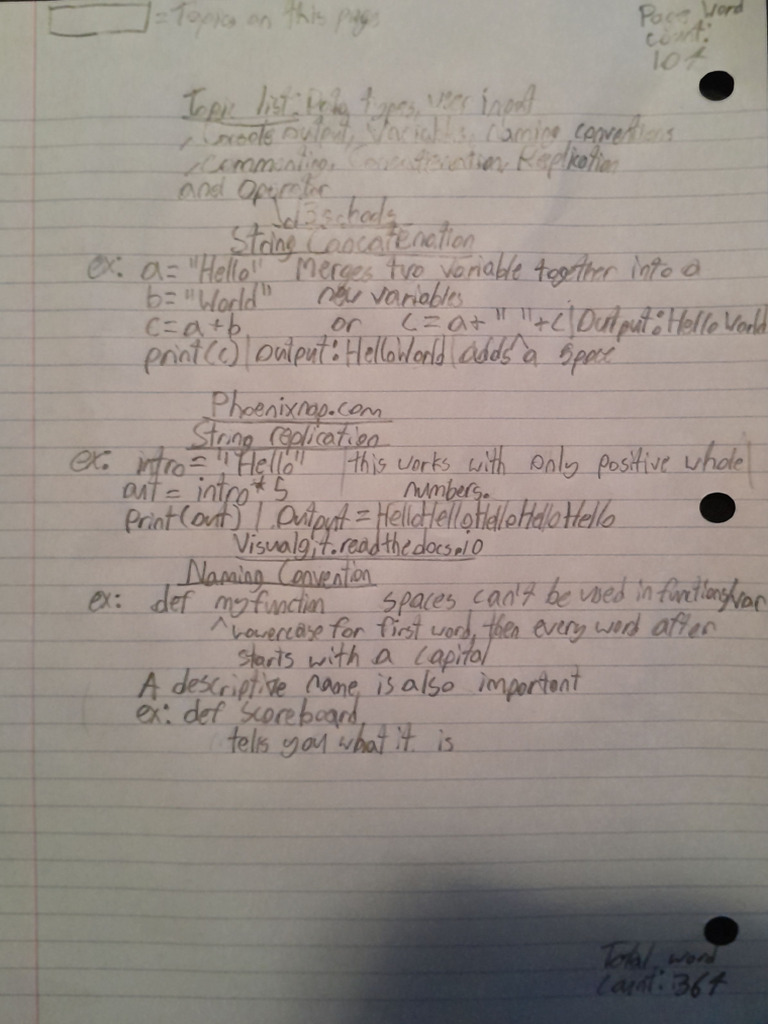 = Topics on this page
Page word
count:
107
Topic list: Data types, User input
, Create output, Variables, Naming conventions
, Commenting, Concatenation, Replication
and Operator
W3schools
String Concatenation
ex: a= "Hello" Merges two variable together into a
b= "World" new variables
c=a+b or c=a+" "+c | Output: Hello World
print(c) | Output: HelloWorld | adds ^ a space
Phoenixnap.com
String replication
ex: intro= "Hello" | this works with only positive whole
out = intro * 5 numbers.
print(out) | Output = HelloHelloHelloHelloHello
Visualgit.readthedocs.io
Naming Convention
ex: def myfunction spaces can't be used in functions/var
^ Lowercase for first word, then every word after
starts with a capital
A descriptive name is also important
ex: def scoreboard
tells you what it is
Total word
count: 367